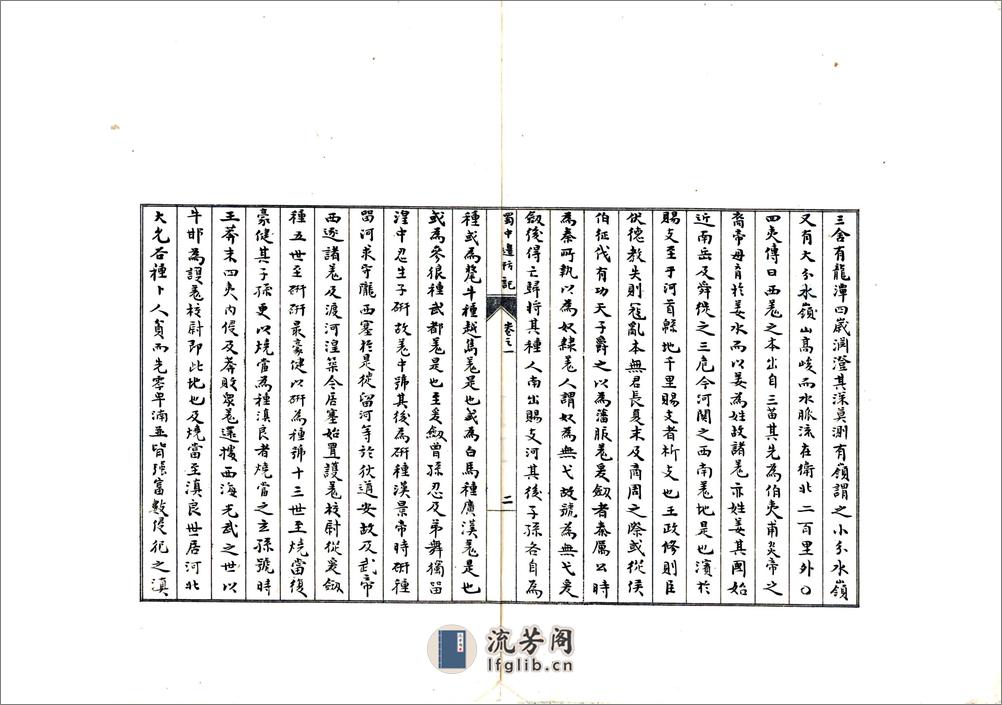 三舍有龍潭四崴淵澄其深莫測有嶺謂之小分水嶺
又有大分水嶺山高峻而水脈流在衛北二百里外〇
四夷傳曰西羗之本出自三苗其先為伯夷甫炎帝之
裔帝母育於姜水而以姜為姓故諸羗亦姓姜其國始
近南岳及舜徙之三危今河関之西南羗地是也濱於
賜支至于河首緜地千里賜支者析支也王政修則臣
伏德教失則寇亂本無君長夏末及商周之際或從侯
伯征伐有功天子爵之以為藩脤羗爰劔者秦厲公時
為秦所執以為奴隷羗人謂奴為無弋故號為無弋爰
劔後得亡歸將其種人南出賜支河其後子孫各自為
蜀中邊防記 卷之一 二
種或為氂牛種越雋羗是也或為白馬種廣漢羗是也
或為参狼種武都羗是也至爰劔曾孫忍及弟舞獨留
湟中忍生子研故羗中號其後為研種漢景帝時研種
留河求守隴西塞於是徙留河等於狄道安故及武帝
西逐諸羗及渡河湟築令居塞始置護羗校尉從爰劔
種五世至研研最豪健以研為種號十三世至燒當復
豪健其子孫更以燒當為種滇良者燒當之玄孫號時
王莽末四夷內侵及莽敗衆羗還據西海光武之世以
牛邯為護羗校尉即此地也及燒當至滇良世居河北
大允谷種卜人貧而先零卑湳並皆强富數侵犯之滇
流芳阁
lfglib.cn